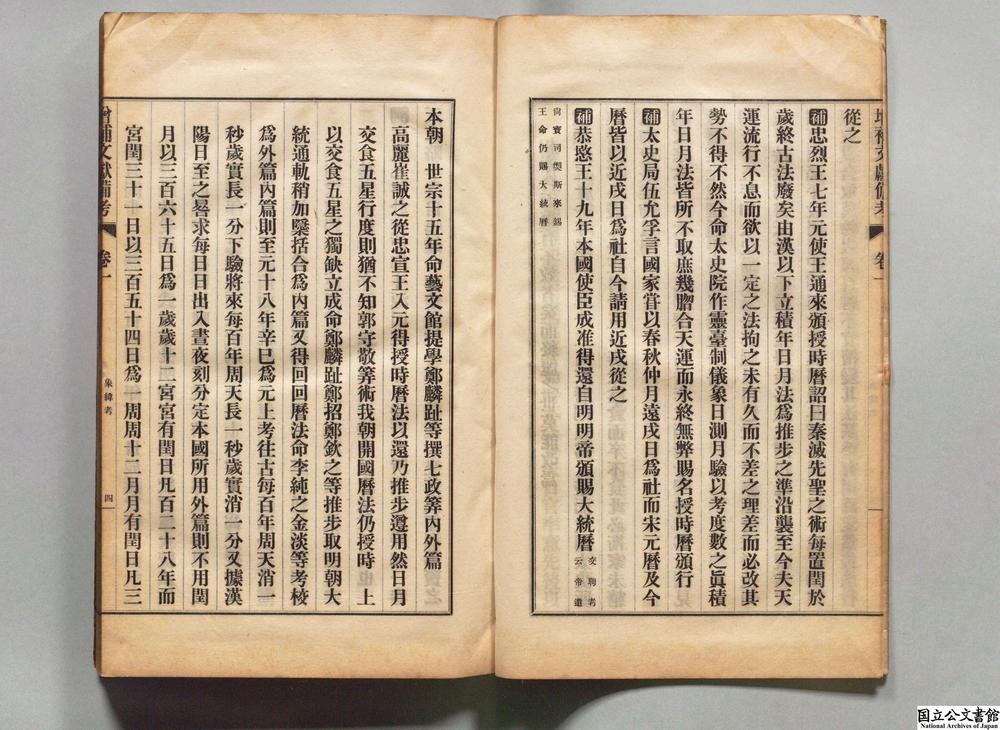 增補文獻備考　卷一
從之
補忠烈王七年元使王通來頒授時曆詔曰秦滅先聖之術每置閏於
歲終古法廢矣由漢以下立積年日月法爲推步之準沿襲至今夫天
運流行不息而欲以一定之法拘之未有久而不差之理差而必改其
勢不得不然今命太史院作靈臺制儀象日測月驗以考度數之眞積
年日月法皆所不取庶幾脗合天運而永終無弊賜名授時曆頒行
補太史局伍允孚言國家甞以春秋仲月遠戌日爲社而宋元曆及今
曆皆以近戌日爲社自今請用近戌從之
補恭愍王十九年本國使臣成准得還自明明帝頒賜大統曆交聘考云帝遣
尙寶司偰斯來錫王命仍賜大統曆
本朝　世宗十五年命藝文館提學鄭麟趾等撰七政筭內外篇
高麗崔誠之從忠宣王入元得授時曆法以還乃推步遵用然日月
交食五星行度則猶不知郭守敬筭術我朝開國曆法仍授時　上
以交食五星之獨缺立成命鄭麟趾鄭招鄭欽之等推步取明朝大
統通軌稍加櫽括合爲內篇又得回回曆法命李純之金淡等考校
爲外篇內篇則至元十八年辛巳爲元上考往古每百年周天消一
秒歲實長一分下驗將來每百年周天長一秒歲實消一分又據漢
陽日至之晷求每日日出入晝夜刻分定本國所用外篇則不用閏
月以三百六十五日爲一歲歲十二宮宮有閏日凡百二十八年而
宮閏三十一日以三百五十四日爲一周周十二月月有閏日凡三
增補文獻備考　卷一　象緯考　四
国立公文書館
National Archives of Japan